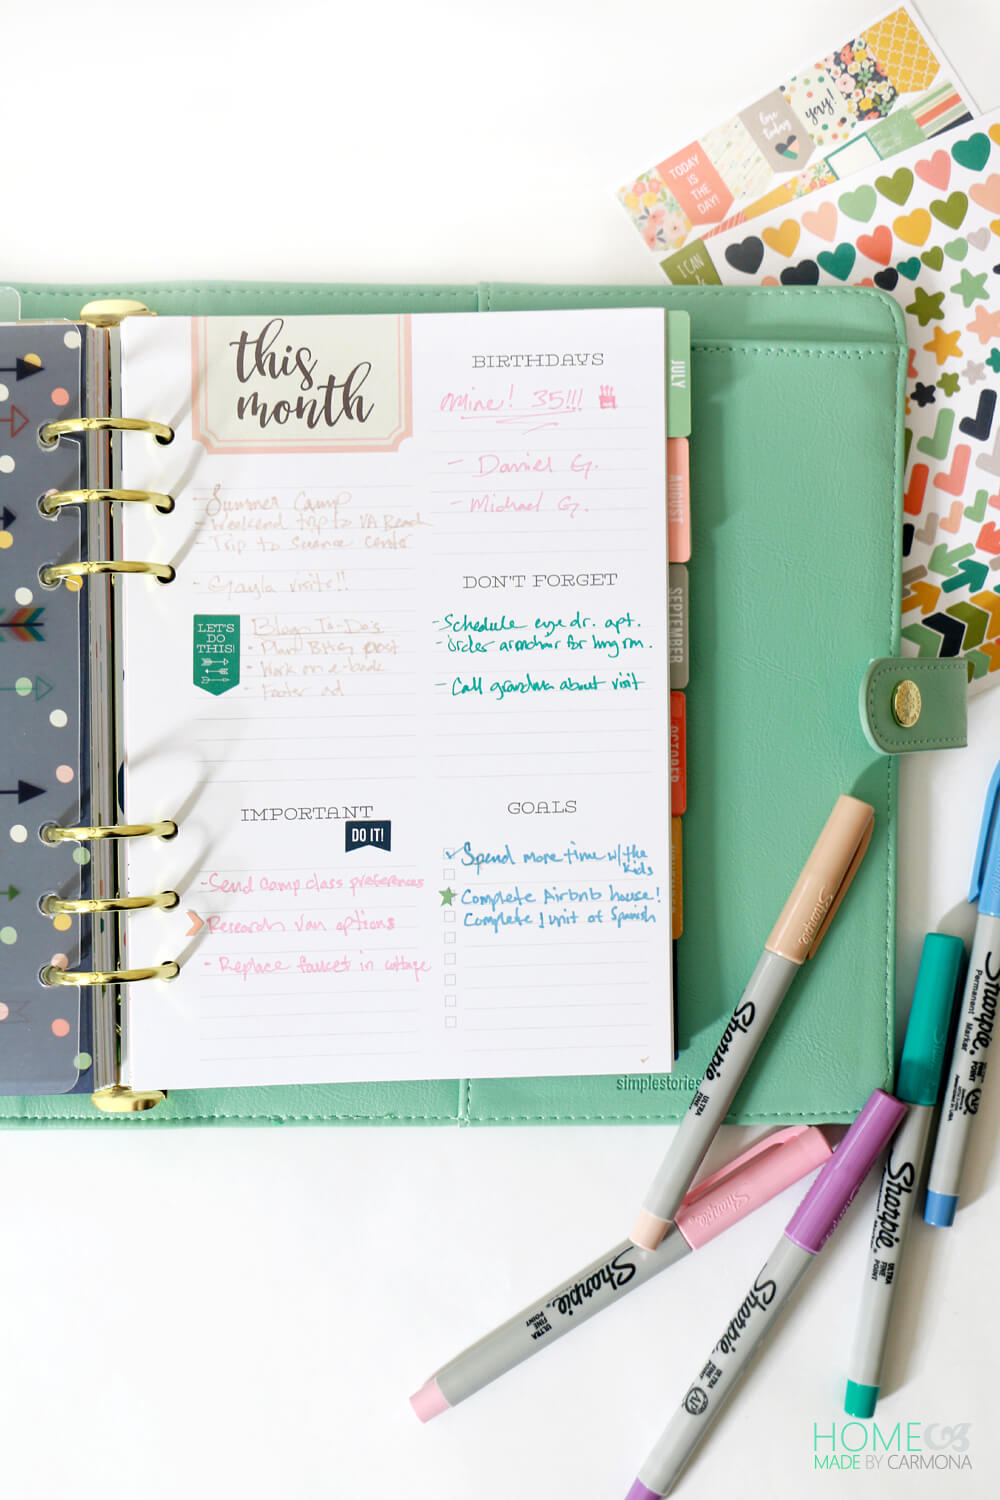 this
month
- Summer Camp
- Weekend trip to VA Beach
- Trip to Science center
- Gayla visits!!
LET'S
DO
THIS!
Blog To-Do's
- Plan Bitsy post
- Work on e-book
- Footer ad
IMPORTANT
DO IT!
- Send camp class preferences
Research van options
- Replace faucet in cottage
BIRTHDAYS
mine! 35!!!
- Daniel G.
- Michael G.
DON'T FORGET
- Schedule eye dr. apt.
- Order armchair for lvng rm.
- Call grandma about visit
GOALS
Spend more time w/ the
kids
Complete Airbnb house!
Complete 1 unit of Spanish
JULY
AUGUST
SEPTEMBER
OCTOBER
simplestories
TODAY
IS
THE
DAY!
love
today
yay!
I CAN
Sharpie
ULTRA
FINE
POINT
Sharpie
ULTRA
FINE
POINT
Sharpie
ULTRA
FINE
POINT
Sharpie
ULTRA
FINE
POINT
Sharpie
Permanent
Marker
HOME
MADE BY CARMONA